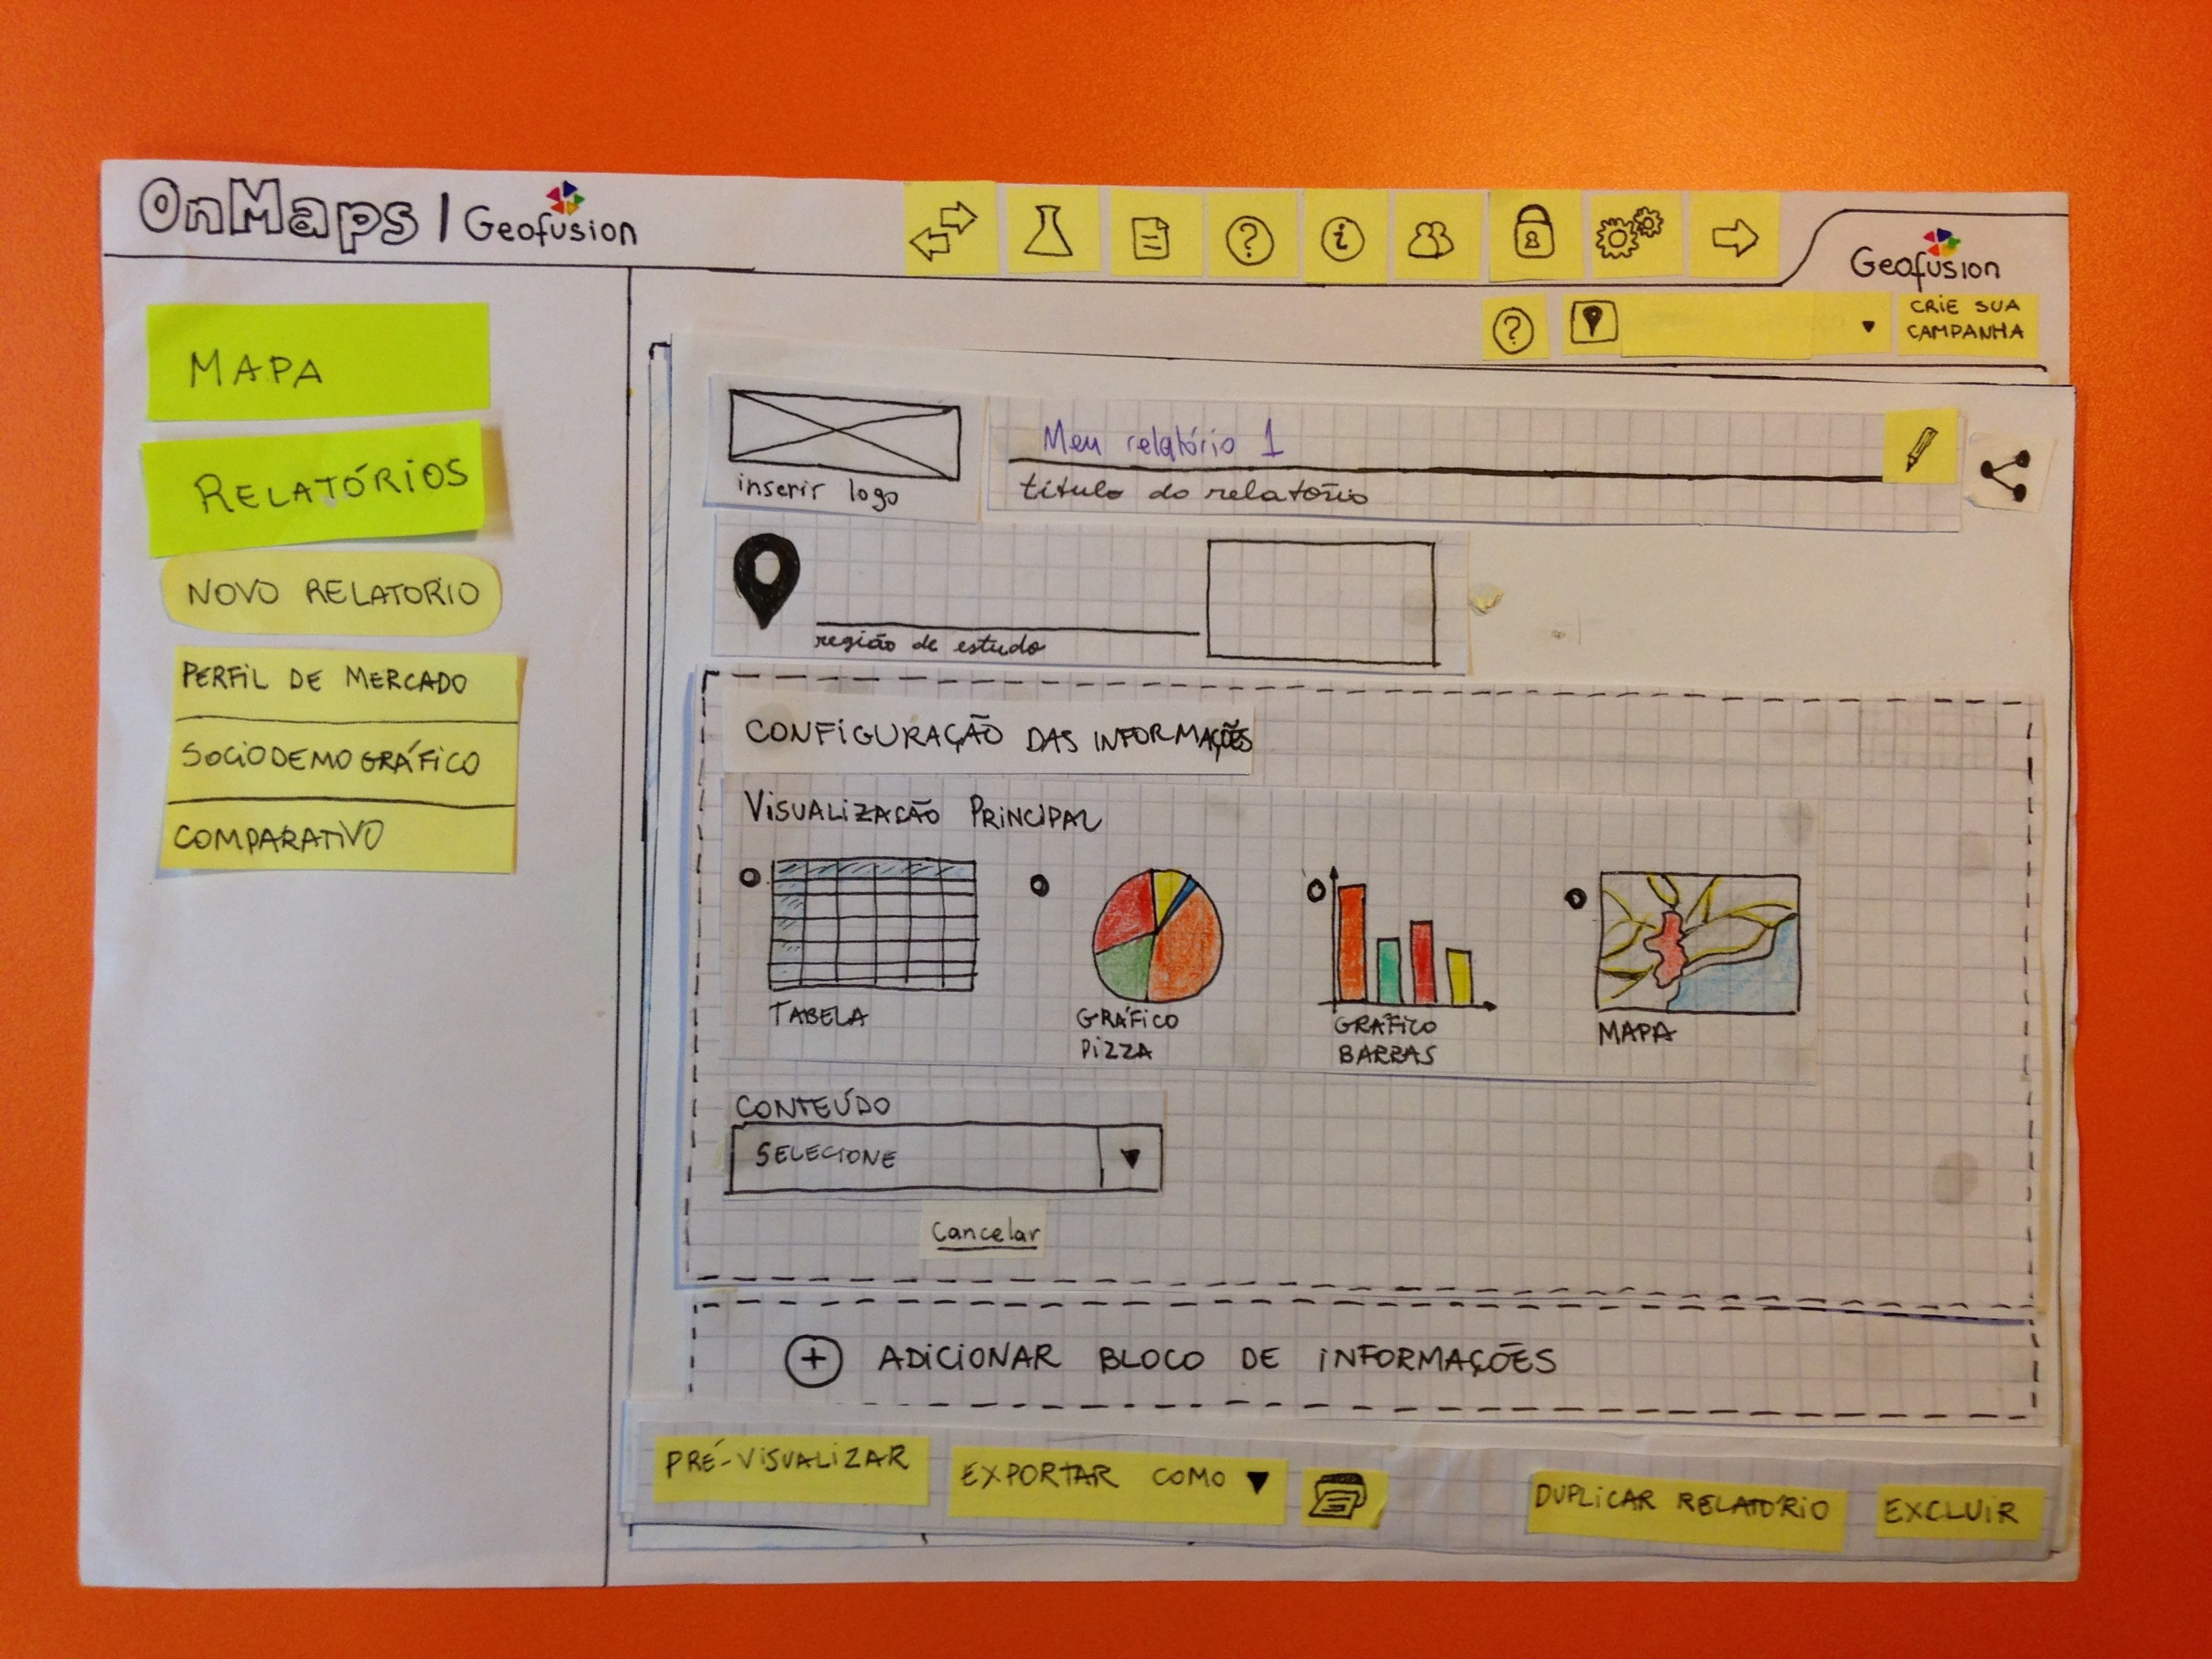 OnMaps | Geofusion
Geofusion
CRIE SUA
CAMPANHA
MAPA
RELATÓRIOS
NOVO RELATORIO
PERFIL DE MERCADO
SOCIODEMOGRÁFICO
COMPARATIVO
inserir logo
Meu relatório 1
título do relatório
região de estudo
CONFIGURAÇÃO DAS INFORMAÇÕES
VISUALIZAÇÃO PRINCIPAL
TABELA
GRÁFICO
PIZZA
GRÁFICO
BARRAS
MAPA
CONTEÚDO
SELECIONE
Cancelar
+ ADICIONAR BLOCO DE INFORMAÇÕES
PRÉ-VISUALIZAR
EXPORTAR COMO
DUPLICAR RELATÓRIO
EXCLUIR